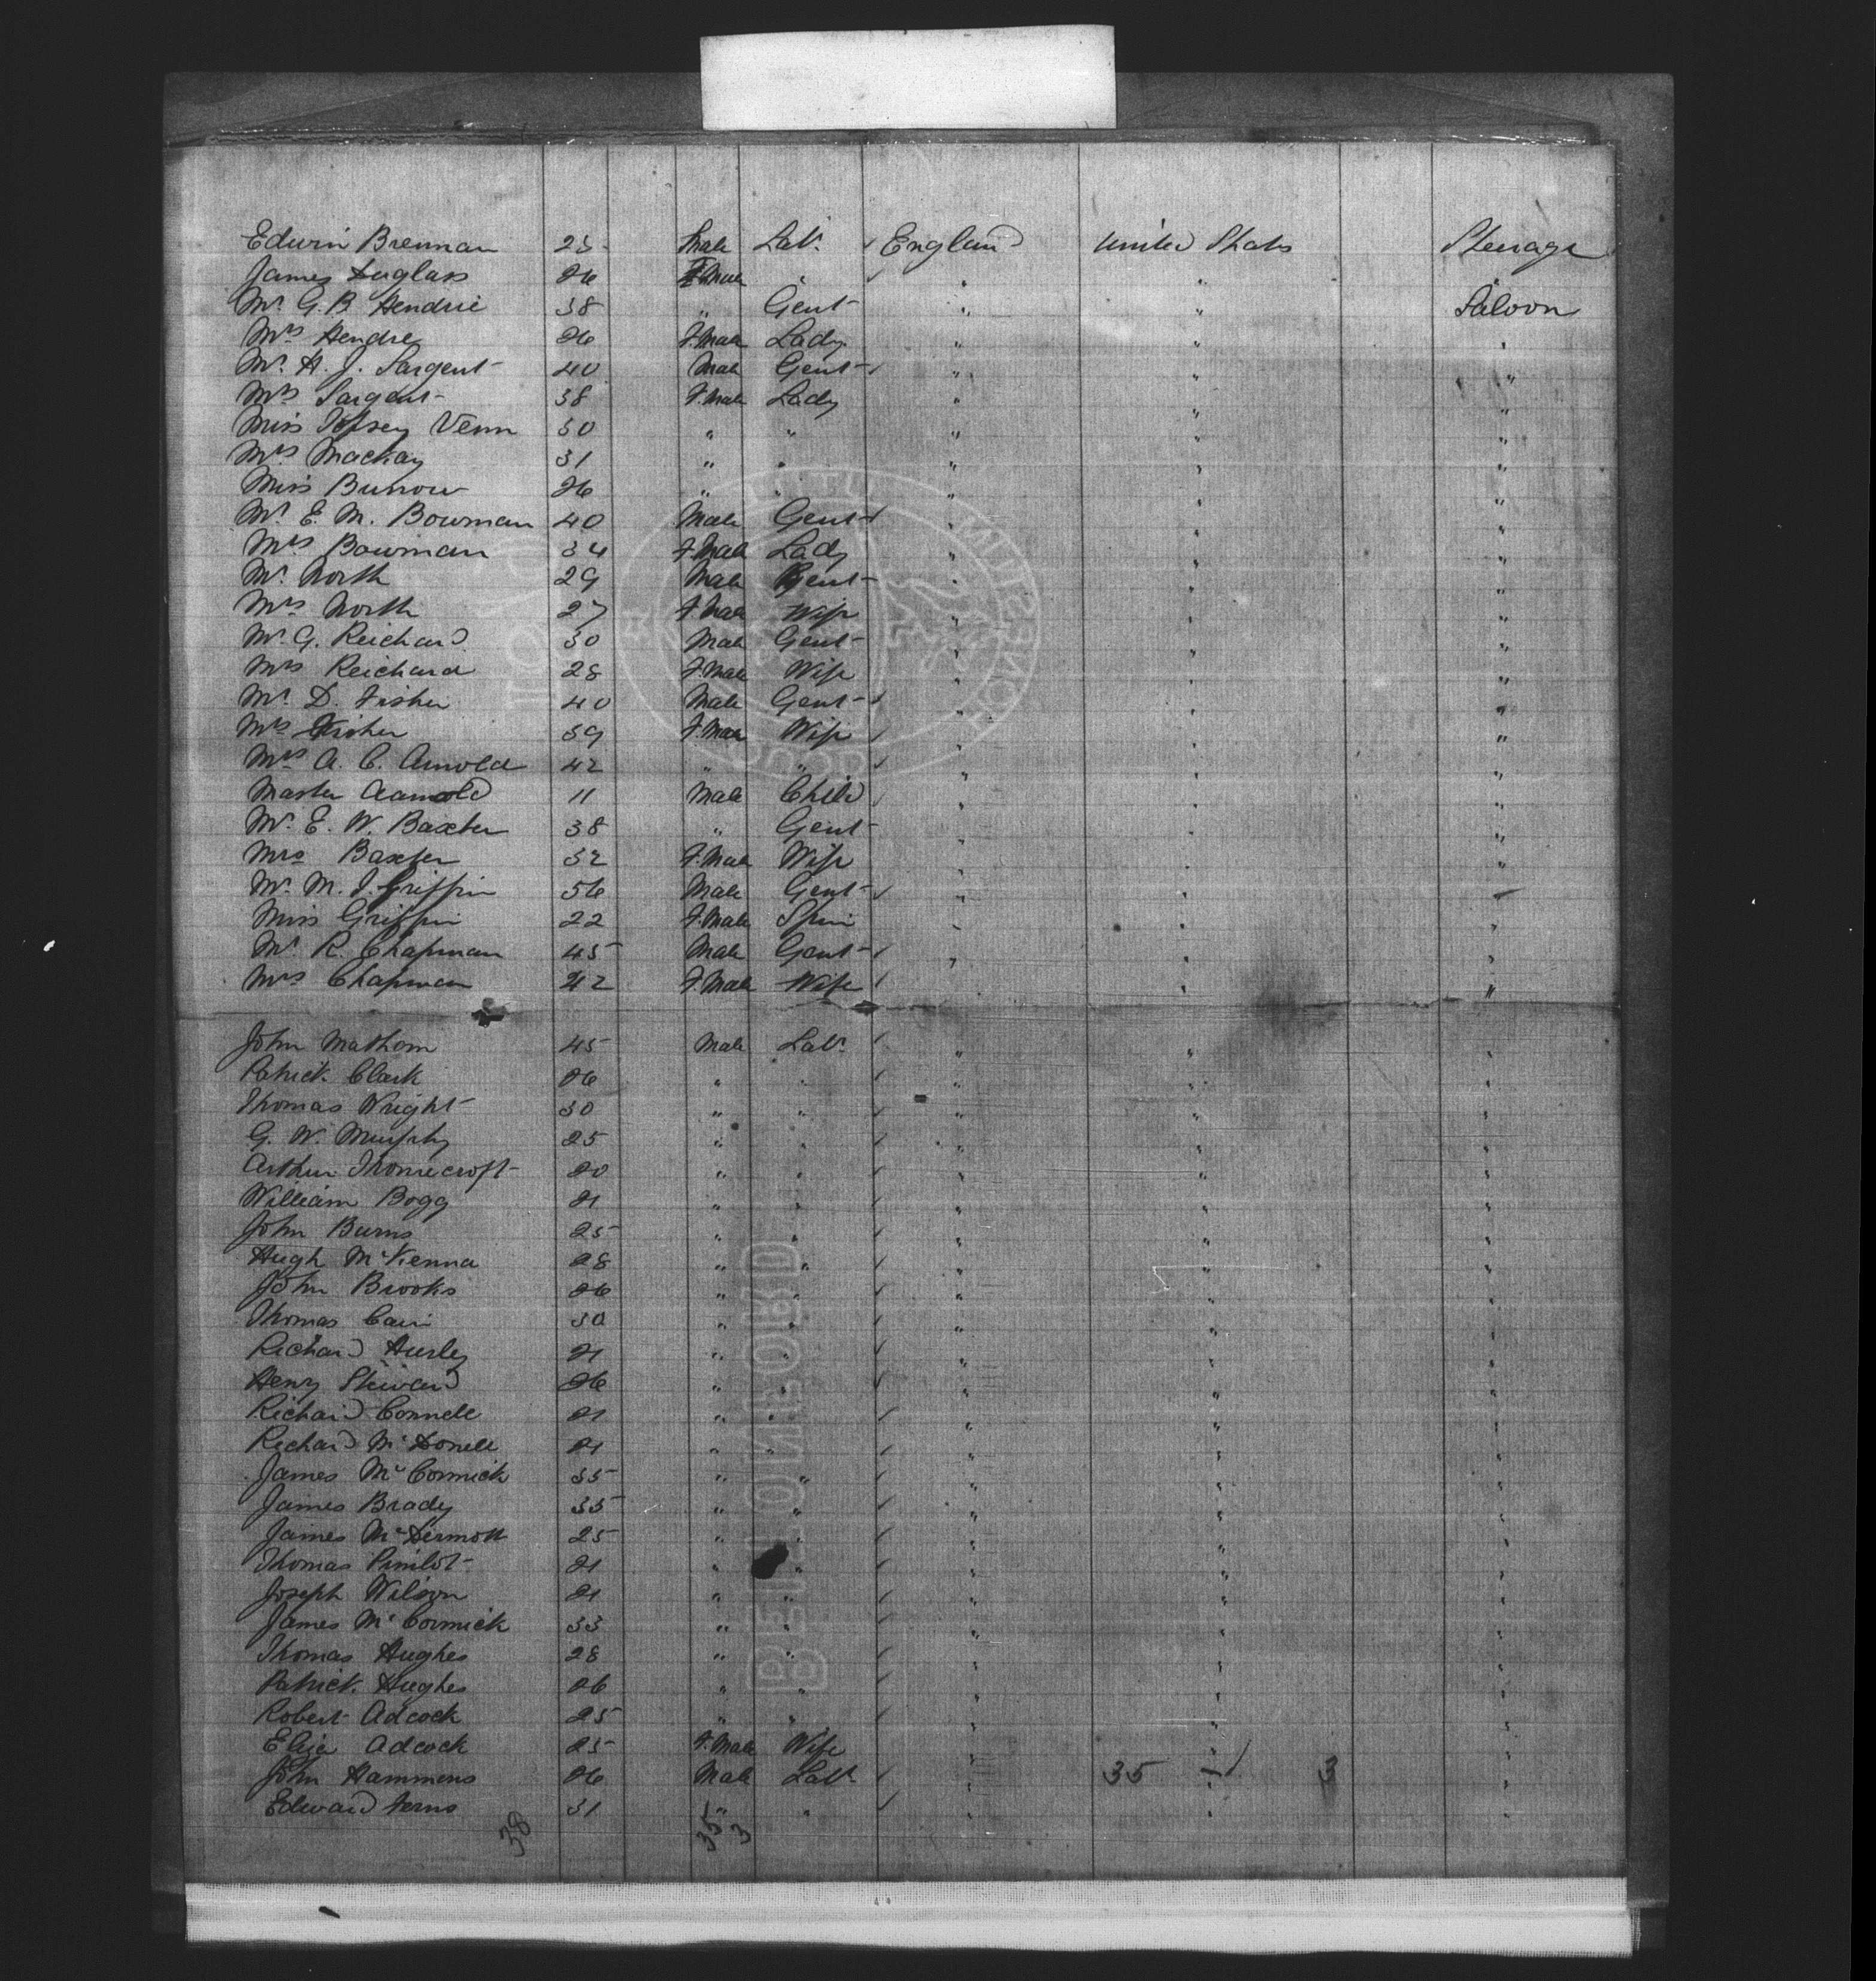 Edwin Brennan 25 Male Lab. England United States Steerage
James Duglass 26 Male " " "
Mr G. B. Hendrie 38 " Gent " " Saloon
Mrs Hendre 26 F.Male Lady " " "
Mr. H. J. Sargent 40 Male Gent " " "
Mrs Sargent 38 F.Male Lady " " "
Miss Venn 30 " " " " "
Mrs Mackay 31 " " " " "
Miss Burrow 26 " " " " "
Mr. E. M. Bowman 40 Male Gent " " "
Mrs Bowman 34 F.Male Lady " " "
Mr. North 29 Male Gent " " "
Mrs North 27 F.Male Wife " " "
Mr. G. Reichard 30 Male Gent " " "
Mrs Reichard 28 F.Male Wife " " "
Mr. D. Fisher 40 Male Gent " " "
Mrs Fisher 39 F.Male Wife " " "
Mrs A. C. Arnold 42 " " " " "
Master Aarnold 11 Male Child " " "
Mr. E. W. Baxter 38 " Gent " " "
Mrs Baxter 32 F.Male Wife " " "
Mr. M. J. Griffin 56 Male Gent " " "
Miss Griffin 22 F.Male Spin " " "
Mr R. Chapman 45 Male Gent " " "
Mrs Chapman 42 F.Male Wife " " "
John Mathom 45 Male Lab. " " "
Patrick Clark 26 " " " " "
Thomas Wright 30 " " " " "
G. W. Murphy 25 " " " " "
Arthur Thornecroft 20 " " " " "
William Bogg 21 " " " " "
John Burns 25 " " " " "
Hugh McKenna 28 " " " " "
John Brooks 26 " " " " "
Thomas Cain 30 " " " " "
Richard Hurley 21 " " " " "
Henry Steward 26 " " " " "
Richard Connell 21 " " " " "
Richard McDonell 21 " " " " "
James McCormick 35 " " " " "
James Brady 35 " " " " "
James McDermott 25 " " " " "
Thomas 21 " " " " "
Joseph Wilson 21 " " " " "
James McCormick 33 " " " " "
Thomas Hughes 28 " " " " "
Patrick Hughes 26 " " " " "
Robert Adcock 25 " " " " "
Eliza Adcock 25 F.Male Wife " " "
John Hammens 26 Male Lab. " 35 " 3 "
Edward Ferns 31 " " " " "
38 35 3